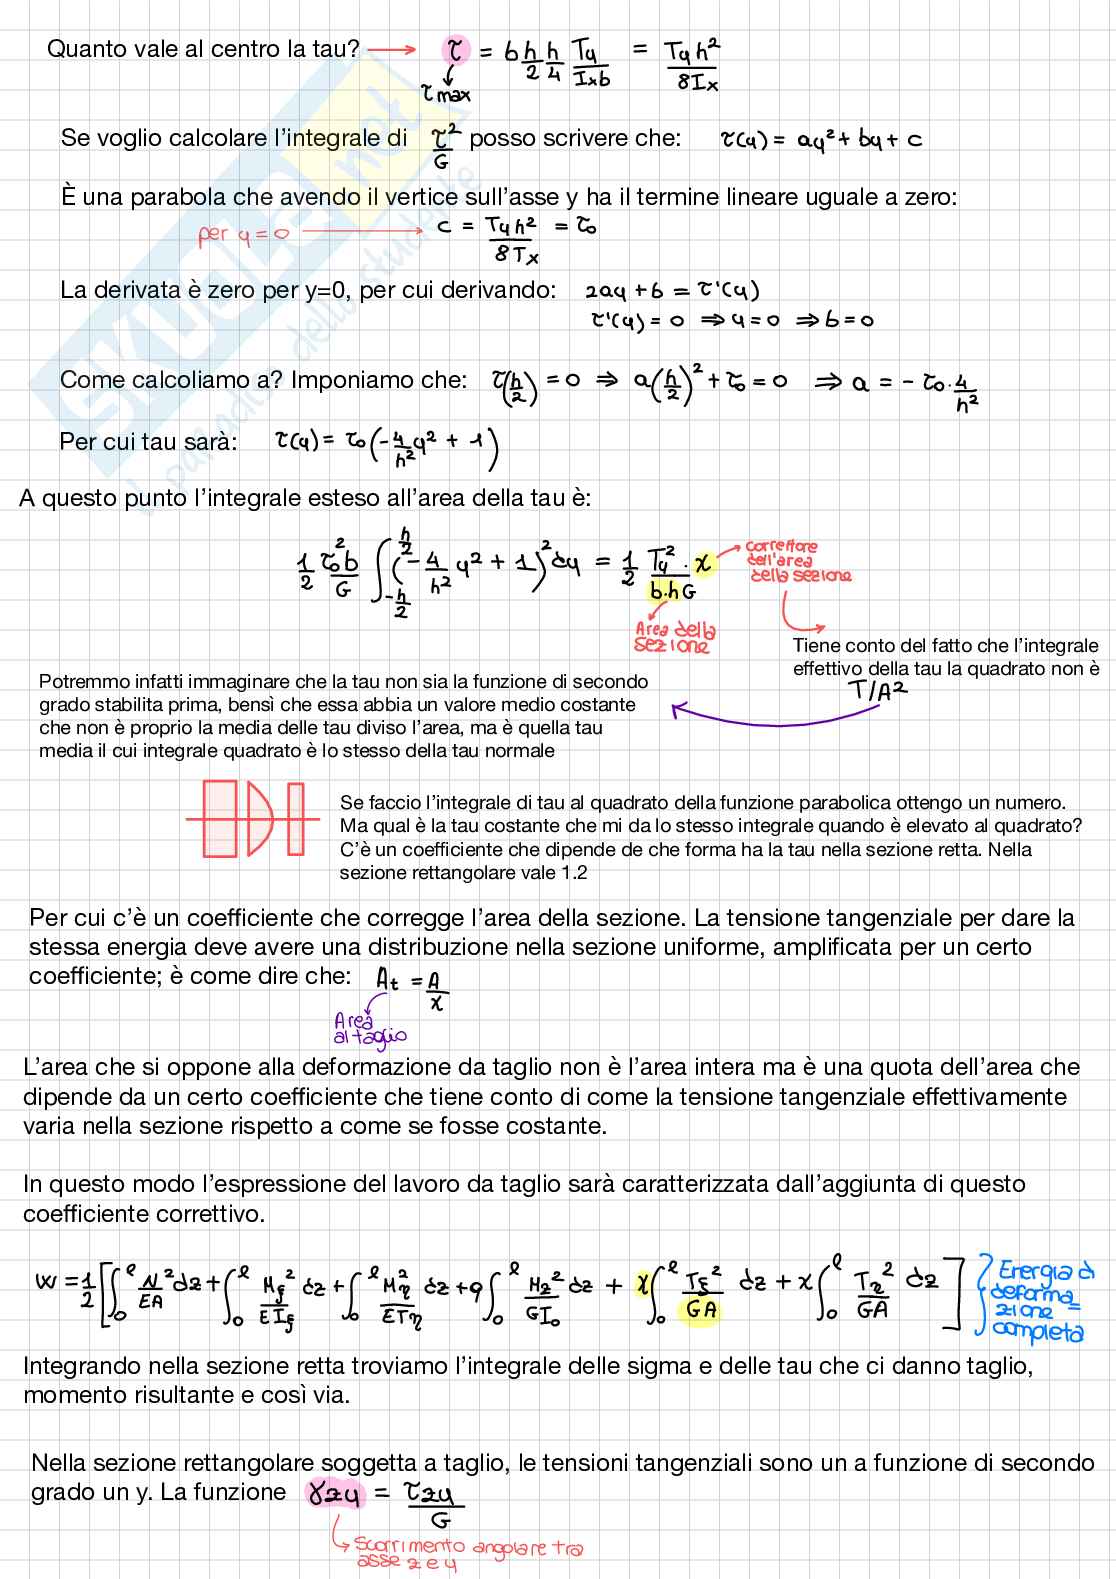 Quanto vale al centro la tau? → τ = b h/2 h/4 Ty/Ixb = Tyh²/8Ix
τmax
Se voglio calcolare l'integrale di τ²/G posso scrivere che: τ(y) = ay² + by + c
È una parabola che avendo il vertice sull'asse y ha il termine lineare uguale a zero:
per y=0 → c = Tyh²/8Tx = τo
La derivata è zero per y=0, per cui derivando: 2ay + b = τ'(y)
τ'(y) = 0 ⇒ y=0 ⇒ b=0
Come calcoliamo a? Imponiamo che: τ(h/2) = 0 ⇒ a(h/2)² + τo = 0 ⇒ a = - τo · 4/h²
Per cui tau sarà: τ(y) = τo(-4/h² y² + 1)
A questo punto l'integrale esteso all'area della tau è:
1/2 τo²b/G ∫_{-h/2}^{h/2} (-4/h² y² + 1)² dy = 1/2 Ty²/b·hG · χ
correttore
dell'area
della sezione
Area della
sezione
Tiene conto del fatto che l'integrale
effettivo della tau la quadrato non è
T/A²
Potremmo infatti immaginare che la tau non sia la funzione di secondo
grado stabilita prima, bensì che essa abbia un valore medio costante
che non è proprio la media delle tau diviso l'area, ma è quella tau
media il cui integrale quadrato è lo stesso della tau normale
Se faccio l'integrale di tau al quadrato della funzione parabolica ottengo un numero.
Ma qual è la tau costante che mi da lo stesso integrale quando è elevato al quadrato?
C'è un coefficiente che dipende de che forma ha la tau nella sezione retta. Nella
sezione rettangolare vale 1.2
Per cui c'è un coefficiente che corregge l'area della sezione. La tensione tangenziale per dare la
stessa energia deve avere una distribuzione nella sezione uniforme, amplificata per un certo
coefficiente; è come dire che: At = A/χ
Area
al taglio
L'area che si oppone alla deformazione da taglio non è l'area intera ma è una quota dell'area che
dipende da un certo coefficiente che tiene conto di come la tensione tangenziale effettivamente
varia nella sezione rispetto a come se fosse costante.
In questo modo l'espressione del lavoro da taglio sarà caratterizzata dall'aggiunta di questo
coefficiente correttivo.
W = 1/2 [∫₀^ℓ N²/EA dz + ∫₀^ℓ Mξ²/EIξ dz + ∫₀^ℓ Mη²/ETη dz + q ∫₀^ℓ Mz²/GIo dz + χ ∫₀^ℓ Tξ²/GA dz + χ ∫₀^ℓ Tη²/GA dz]
Energia di
deforma=
zione
completa
Integrando nella sezione retta troviamo l'integrale delle sigma e delle tau che ci danno taglio,
momento risultante e così via.
Nella sezione rettangolare soggetta a taglio, le tensioni tangenziali sono un a funzione di secondo
grado un y. La funzione γzy = τzy/G
Scorrimento angolare tra
asse z e y
SKUOLA.net
il paradiso dello studente